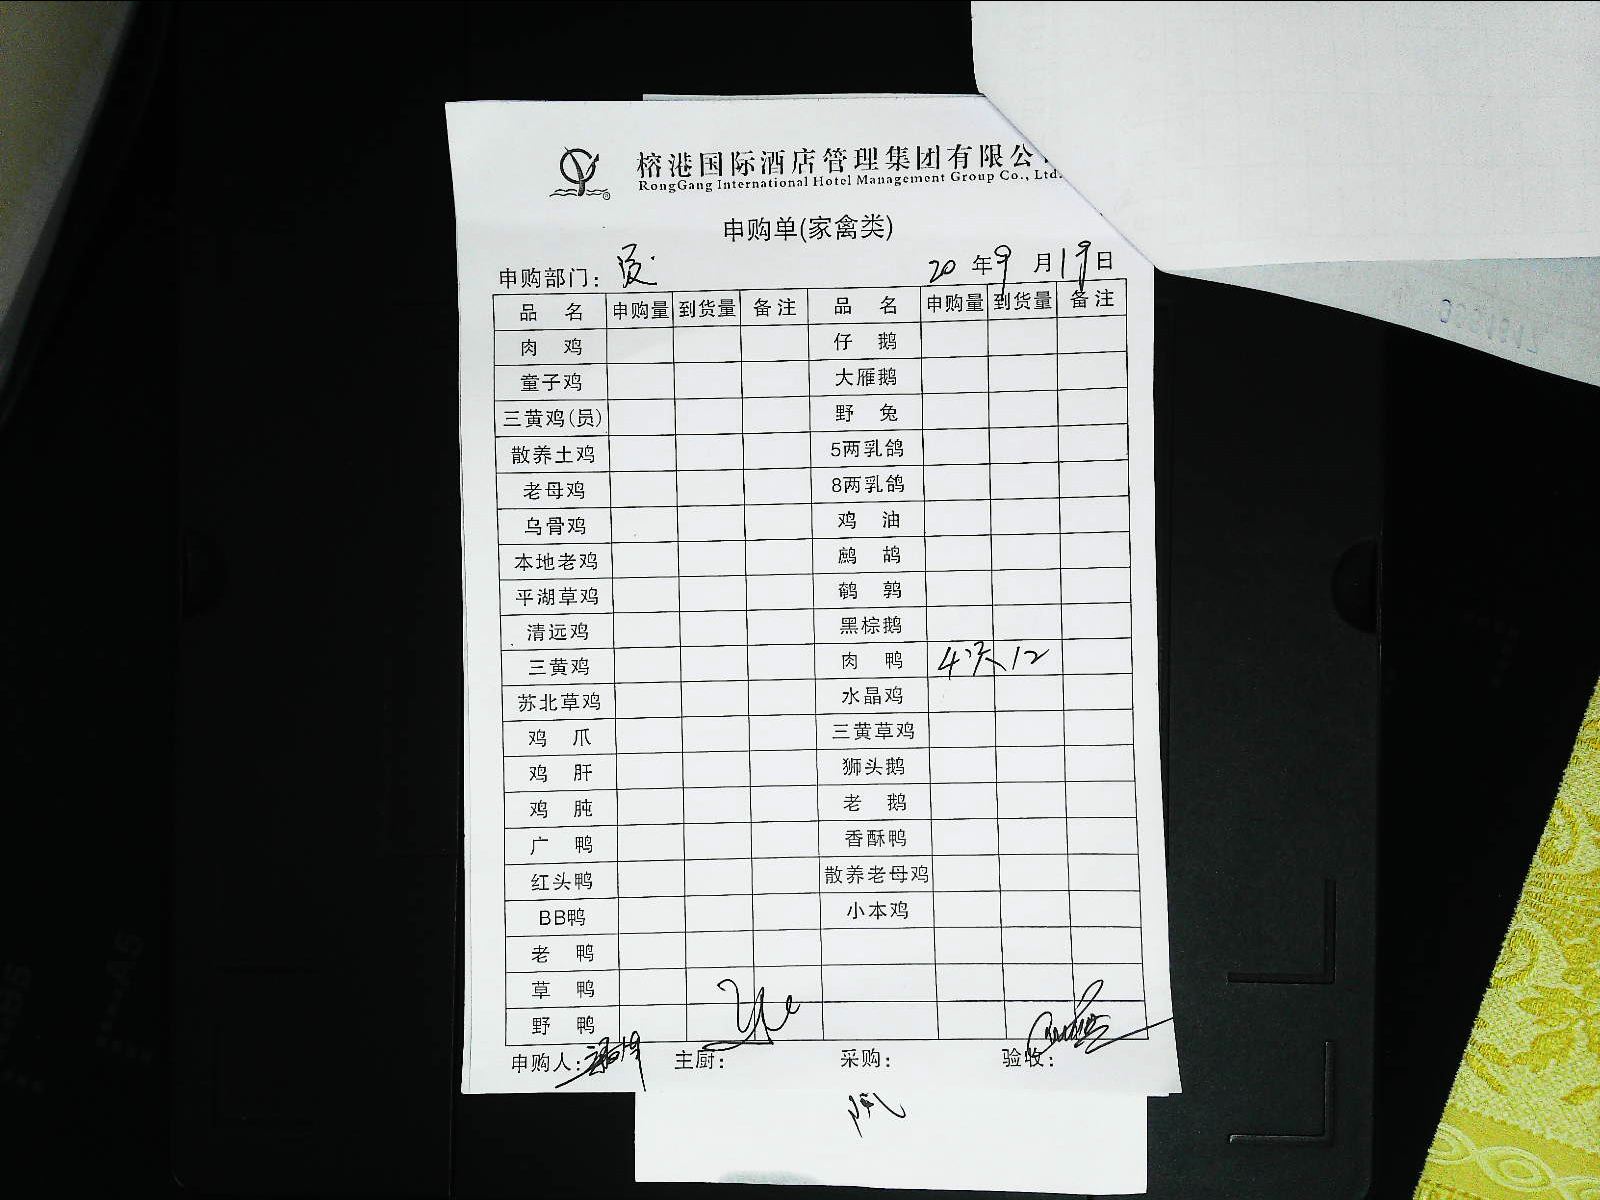 榕港国际酒店管理集团有限公
RongGang International Hotel Management Group Co., Ltd.
申购单(家禽类)
申购部门: 20 年 9 月 19 日
品名 申购量 到货量 备注 品名 申购量 到货量 备注
肉鸡 仔鹅
童子鸡 大雁鹅
三黄鸡(员) 野兔
散养土鸡 5两乳鸽
老母鸡 8两乳鸽
乌骨鸡 鸡油
本地老鸡 鹧鸪
平湖草鸡 鹌鹑
清远鸡 黑棕鹅
三黄鸡 肉鸭 4只 12
苏北草鸡 水晶鸡
鸡爪 三黄草鸡
鸡肝 狮头鹅
鸡肫 老鹅
广鸭 香酥鸭
红头鸭 散养老母鸡
BB鸭 小本鸡
老鸭
草鸭
野鸭
申购人: 主厨: 采购: 验收: